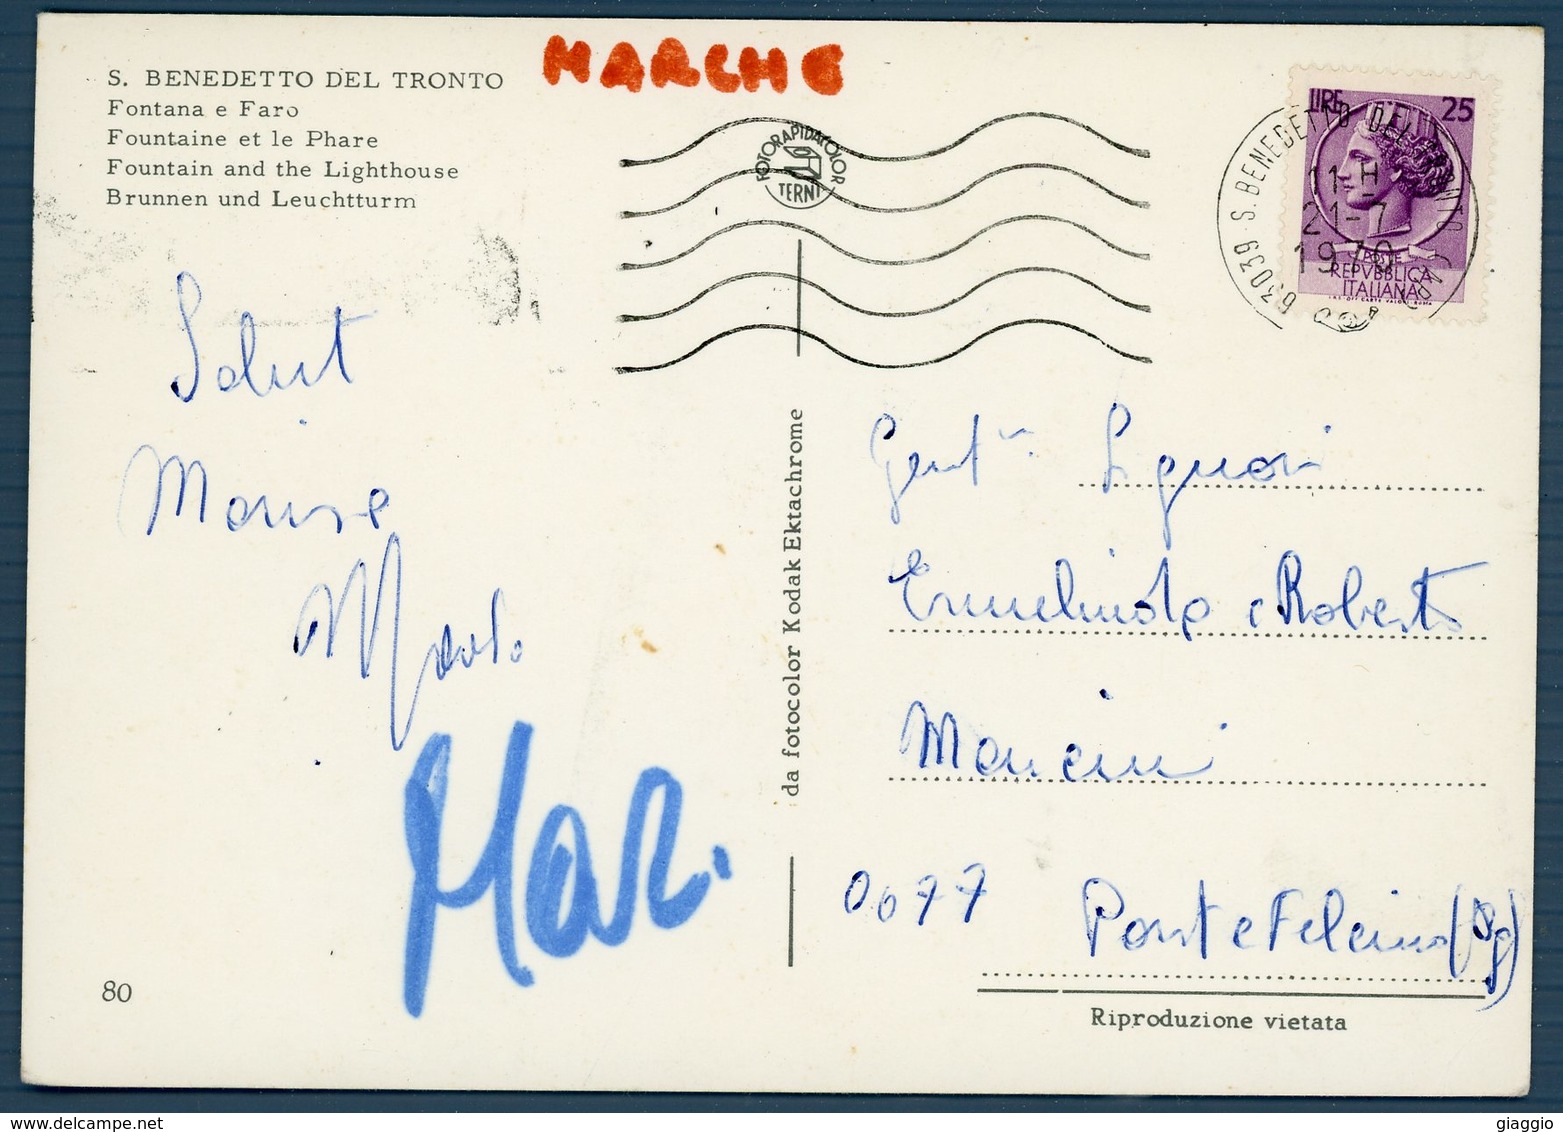 S. BENEDETTO DEL TRONTO
Fontana e Faro
Fountaine et le Phare
Fountain and the Lighthouse
Brunnen und Leuchtturm
MARCHE
FOTORAPIDACOLOR
TERNI
LIRE 25
POSTE
REPVBBLICA
ITALIANA
63039 S. BENEDETTO DEL TRONTO
11-H
21-7
1970
Saluti
Marisa
Mar.
da fotocolor Kodak Ektachrome
Gent. Signori
Ermelinda e Roberto
Mancini
0677 Ponte Felcino (Pg)
80
Riproduzione vietata
giaggio